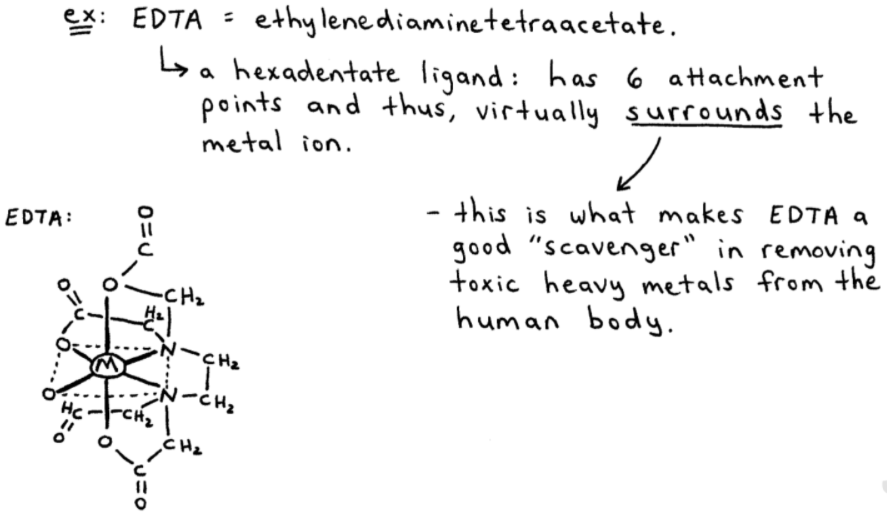 ex: EDTA = ethylenediaminetetraacetate.
↳ a hexadentate ligand: has 6 attachment
points and thus, virtually surrounds the
metal ion.
- this is what makes EDTA a
good "scavenger" in removing
toxic heavy metals from the
human body.
EDTA:
O
C
O CH₂
O
C H₂
C
O N CH₂
M
O N CH₂
HC CH₂
O
O CH₂
C
O